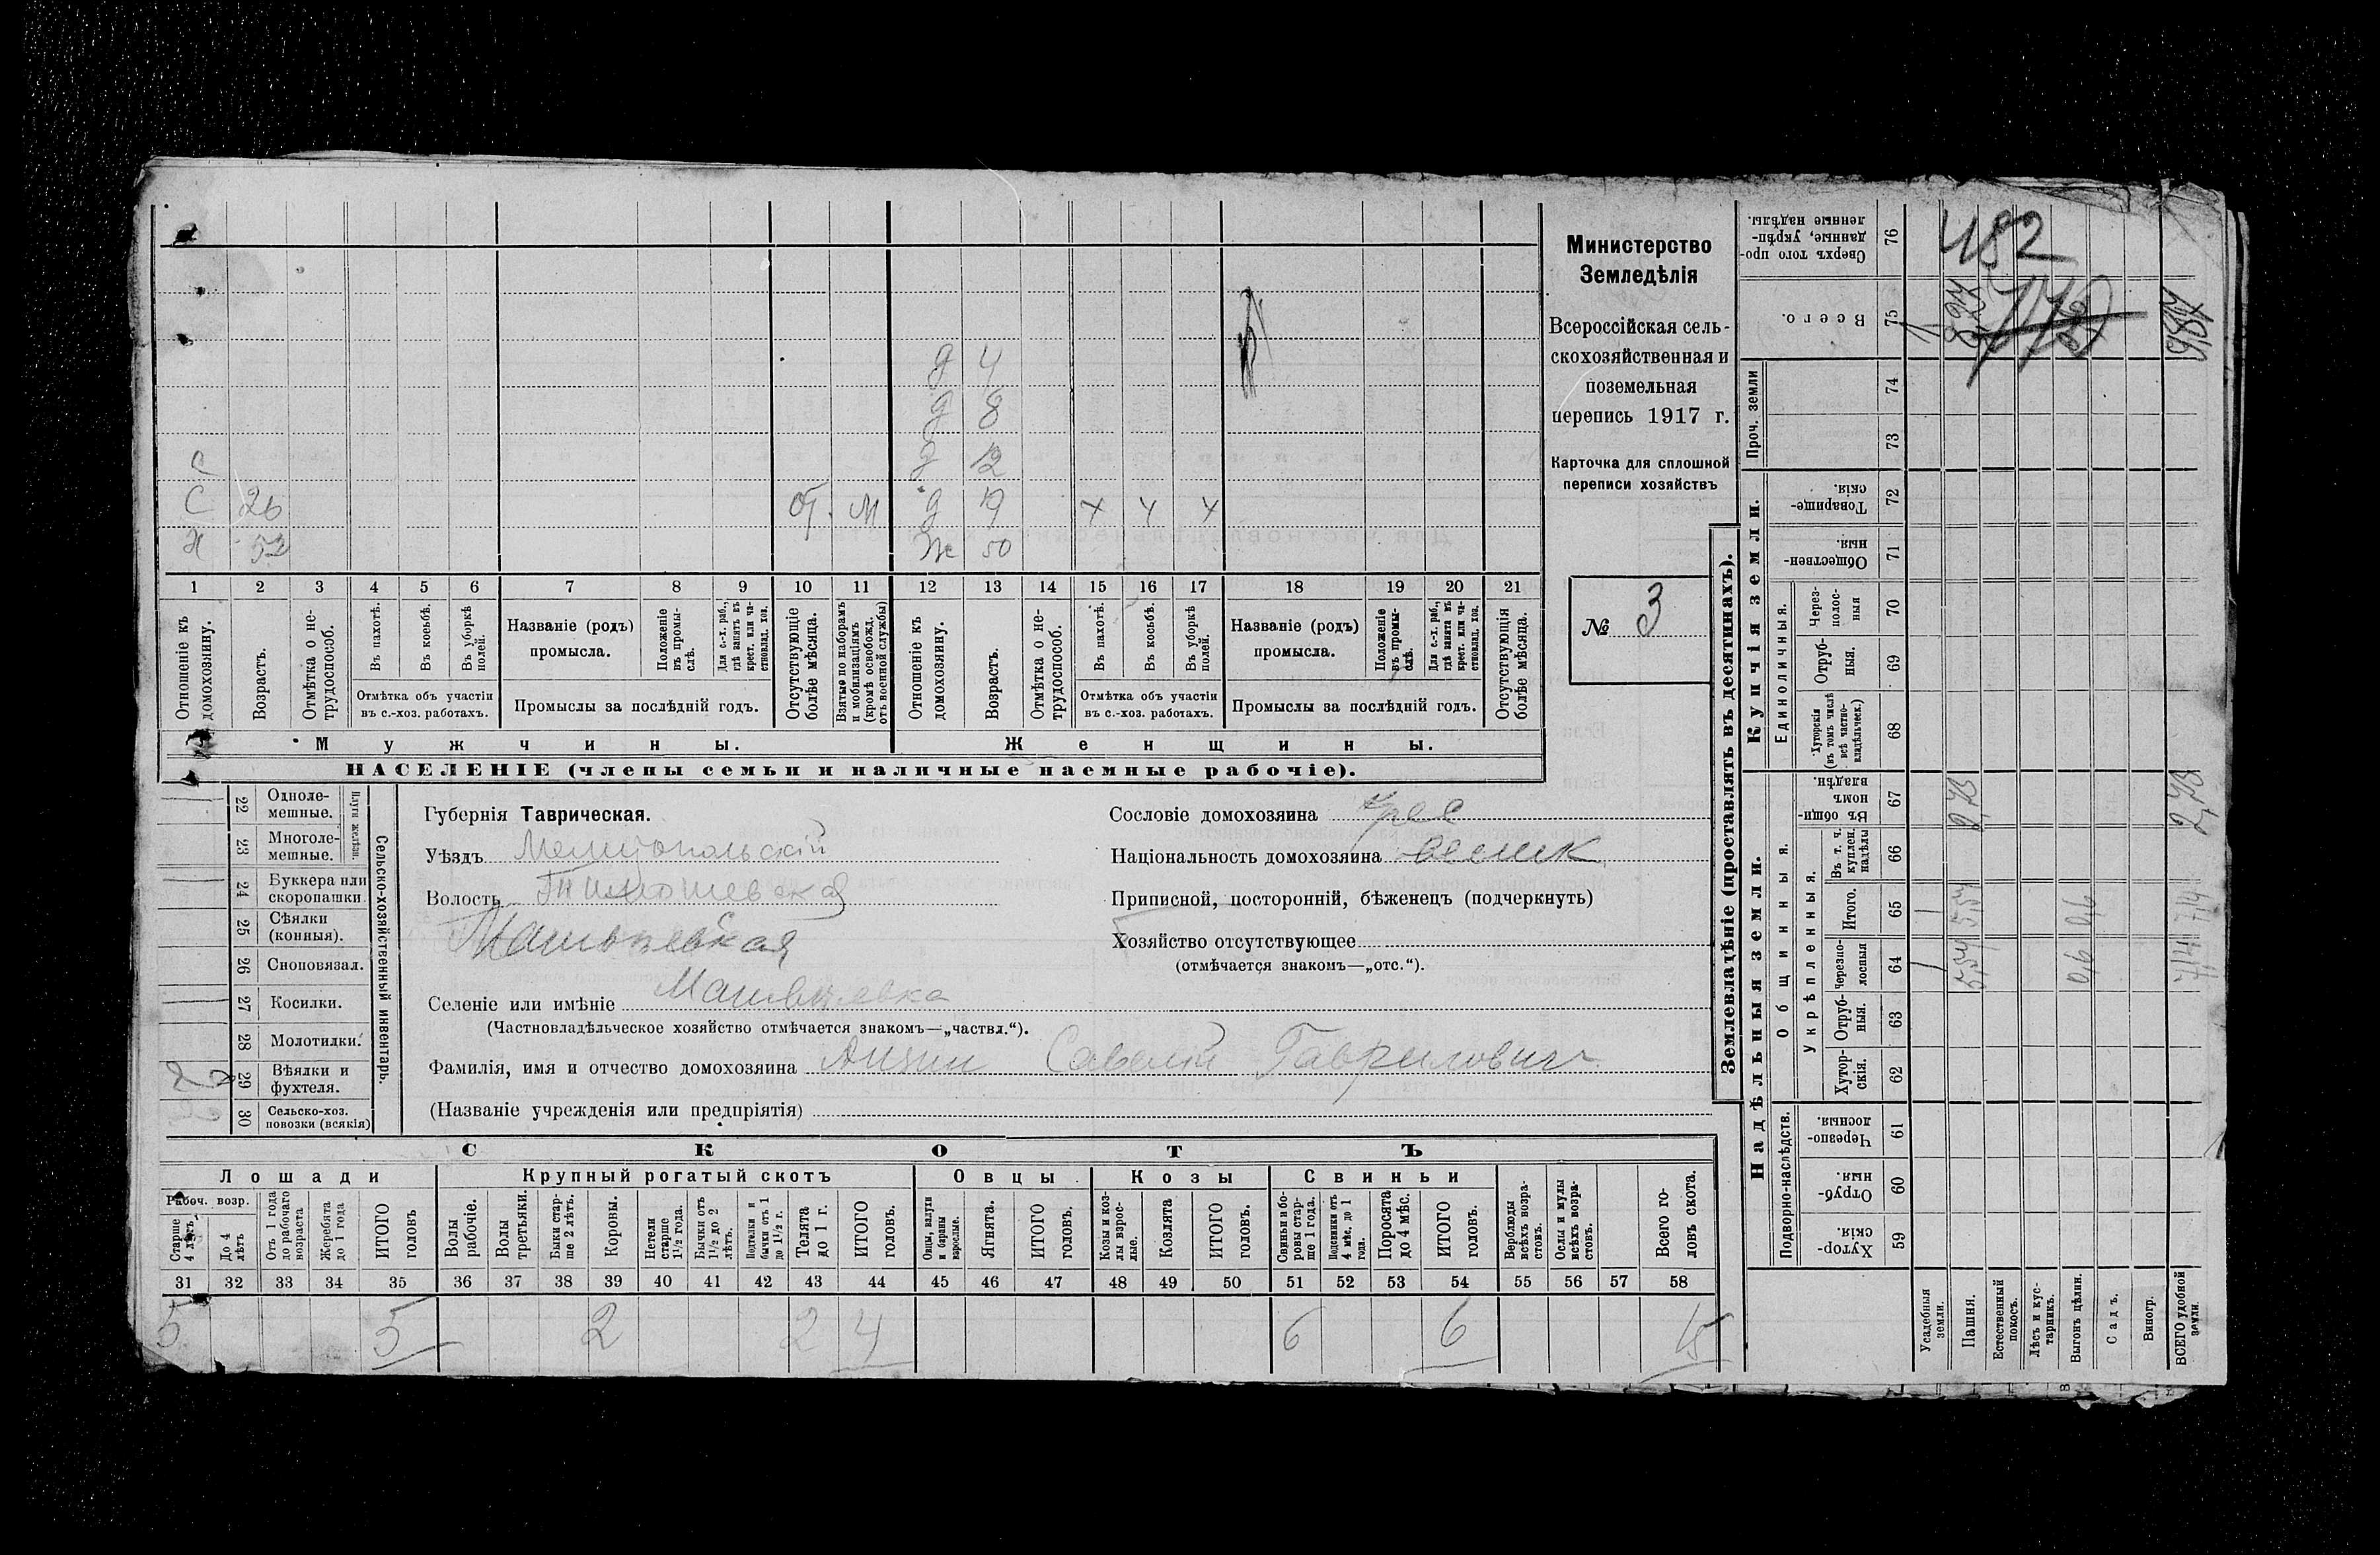 Министерство
Земледѣлія
Всероссійская сель-
скохозяйственная и
поземельная
перепись 1917 г.
Карточка для сплошной
переписи хозяйствъ
№ 3
д 4
д 8
д 12
С
С 26 От. М д 19 х х х
Х 52 Ж 50
1 2 3 4 5 6 7 8 9 10 11 12 13 14 15 16 17 18 19 20 21
Отношеніе къ домохознину.
Возрастъ.
Отмѣтка о не-трудоспособ.
Въ пахотѣ.
Въ косьбѣ.
Въ уборкѣ полей.
Отмѣтка объ участіи въ с.-хоз. работахъ.
Названіе (родъ) промысла.
Положеніе въ промы-слѣ.
Для с.-х. раб., гдѣ занятъ въ крест. или ча-стновлад. хоз.
Промыслы за послѣдній годъ.
Отсутствующіе болѣе мѣсяца.
Взятые по наборамъ и мобилизаціямъ (кромѣ освобожд. отъ военной службы)
Отношеніе къ домохозяину.
Возрастъ.
Отмѣтка о не-трудоспособ.
Въ пахотѣ.
Въ косьбѣ.
Въ уборкѣ полей.
Отмѣтка объ участіи въ с.-хоз. работахъ.
Названіе (родъ) промысла.
Положеніе въ промы-слѣ.
Для с.-х. раб., гдѣ занята въ крест. или ча-стновлад. хоз.
Промыслы за послѣдній годъ.
Отсутствующія болѣе мѣсяца.
Мужчины.
Женщины.
НАСЕЛЕНІЕ (члены семьи и наличные наемные рабочіе).
Сельско-хозяйственный инвентарь.
Плуги желѣзн.
22 Одноле-мешные.
23 Многоле-мешные.
24 Буккера или скоропашки
25 Сѣялки (конныя).
26 Сноповязал.
27 Косилки.
28 Молотилки.
29 Вѣялки и фухтеля.
30 Сельско-хоз. повозки (всякія)
2
Губернія Таврическая.
Уѣздъ Мелитопольскій
Волость Тимошевская
Матвѣевская
Селеніе или имѣніе Матвѣевка
(Частновладѣльческое хозяйство отмѣчается знакомъ—„частвл.“).
Фамилія, имя и отчество домохозяина Савелій Гаврилович
(Названіе учрежденія или предпріятія)
Сословіе домохозяина крес
Національность домохозяина
Приписной, посторонній, бѣженец (подчеркнуть)
Хозяйство отсутствующее
(отмѣчается знакомъ—„отс.“).
СКОТЪ
Лошади
Крупный рогатый скотъ
Овцы
Козы
Свиньи
Рабоч. возр.
Старше 4 лѣтъ
До 4 лѣтъ
Отъ 1 года до рабочаго возраста
Жеребята до 1 года
ИТОГО головъ
Волы рабочіе.
Волы третьяки.
Быки стар-ше 2 лѣтъ.
Коровы.
Нетели старше 1½ года.
Бычки отъ 1½ до 2 лѣтъ.
Подтелки и бычки отъ 1 до 1½ г.
Телята до 1 г.
ИТОГО головъ.
Овцы, валухи и бараны взрослые.
Ягнята.
ИТОГО головъ.
Козы и коз-лы взрос-лые.
Козлята
ИТОГО головъ.
Свиньи и бо-ровы стар-ше 1 года.
Подсвинки отъ 4 мѣс. до 1 года.
Поросята до 4 мѣс.
ИТОГО головъ.
Верблюды всѣхъ возра-стовъ.
Ослы и мулы всѣхъ возра-стовъ.
Всего го-ловъ скота.
31 32 33 34 35 36 37 38 39 40 41 42 43 44 45 46 47 48 49 50 51 52 53 54 55 56 57 58
5 5 2 2 4 6 6 15
Землевладѣніе (проставлять въ десятинахъ).
Надѣльныя земли.
Купчія земли.
Проч. земли
Подворно-наслѣдств.
Общинныя.
Укрѣпленныя.
Единоличныя.
Хутор-скія. 59
Отруб-ныя. 60
Черезпо-лосныя. 61
Хутор-скія. 62
Отруб-ныя. 63
Черезпо-лосныя 64
Итого. 65
Въ т. ч. куплен. надѣлы 66
Въ общи-номъ владѣн. 67
Хуторскія (въ томъ числѣ всѣ частно-владѣльческ.) 68
Отруб-ныя. 69
Через-полос-ныя 70
Обществен-ныя. 71
Товарище-скія. 72
73
74
Всего. 75
Сверхъ того про-данные, укрѣп-ленные надѣлы. 76
Усадебныя земли.
Пашня.
Естественный покосъ.
Лѣсъ и кус-тарникъ.
Выгонъ цѣлин.
Садъ.
Виногр.
ВСЕГО удобной земли.
1 1
5,54 5,54
0,6 0,6
7,14 7,14
482